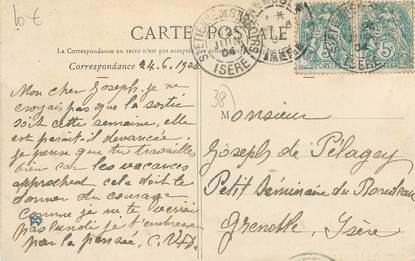 10 €
CARTE POSTALE
La Correspondance au recto n'est pas acceptée
Correspondance 24.6.1904
ST ETIENNE DE ST GEOIRS
25
JUIN
04
ISÈRE
5
38
Mon cher Joseph, je ne
croyais pas que la sortie
soit cette semaine, elle
est paraît-il devancée.
je pense que tu travailles
bien car les vacances
approchent cela doit te
donner du courage
Comme je ne te verrai
pas lundi je t'embrasse
par la pensée,
Monsieur
Joseph de Pélagey
Petit Séminaire du Rondeau
Grenoble, Isère